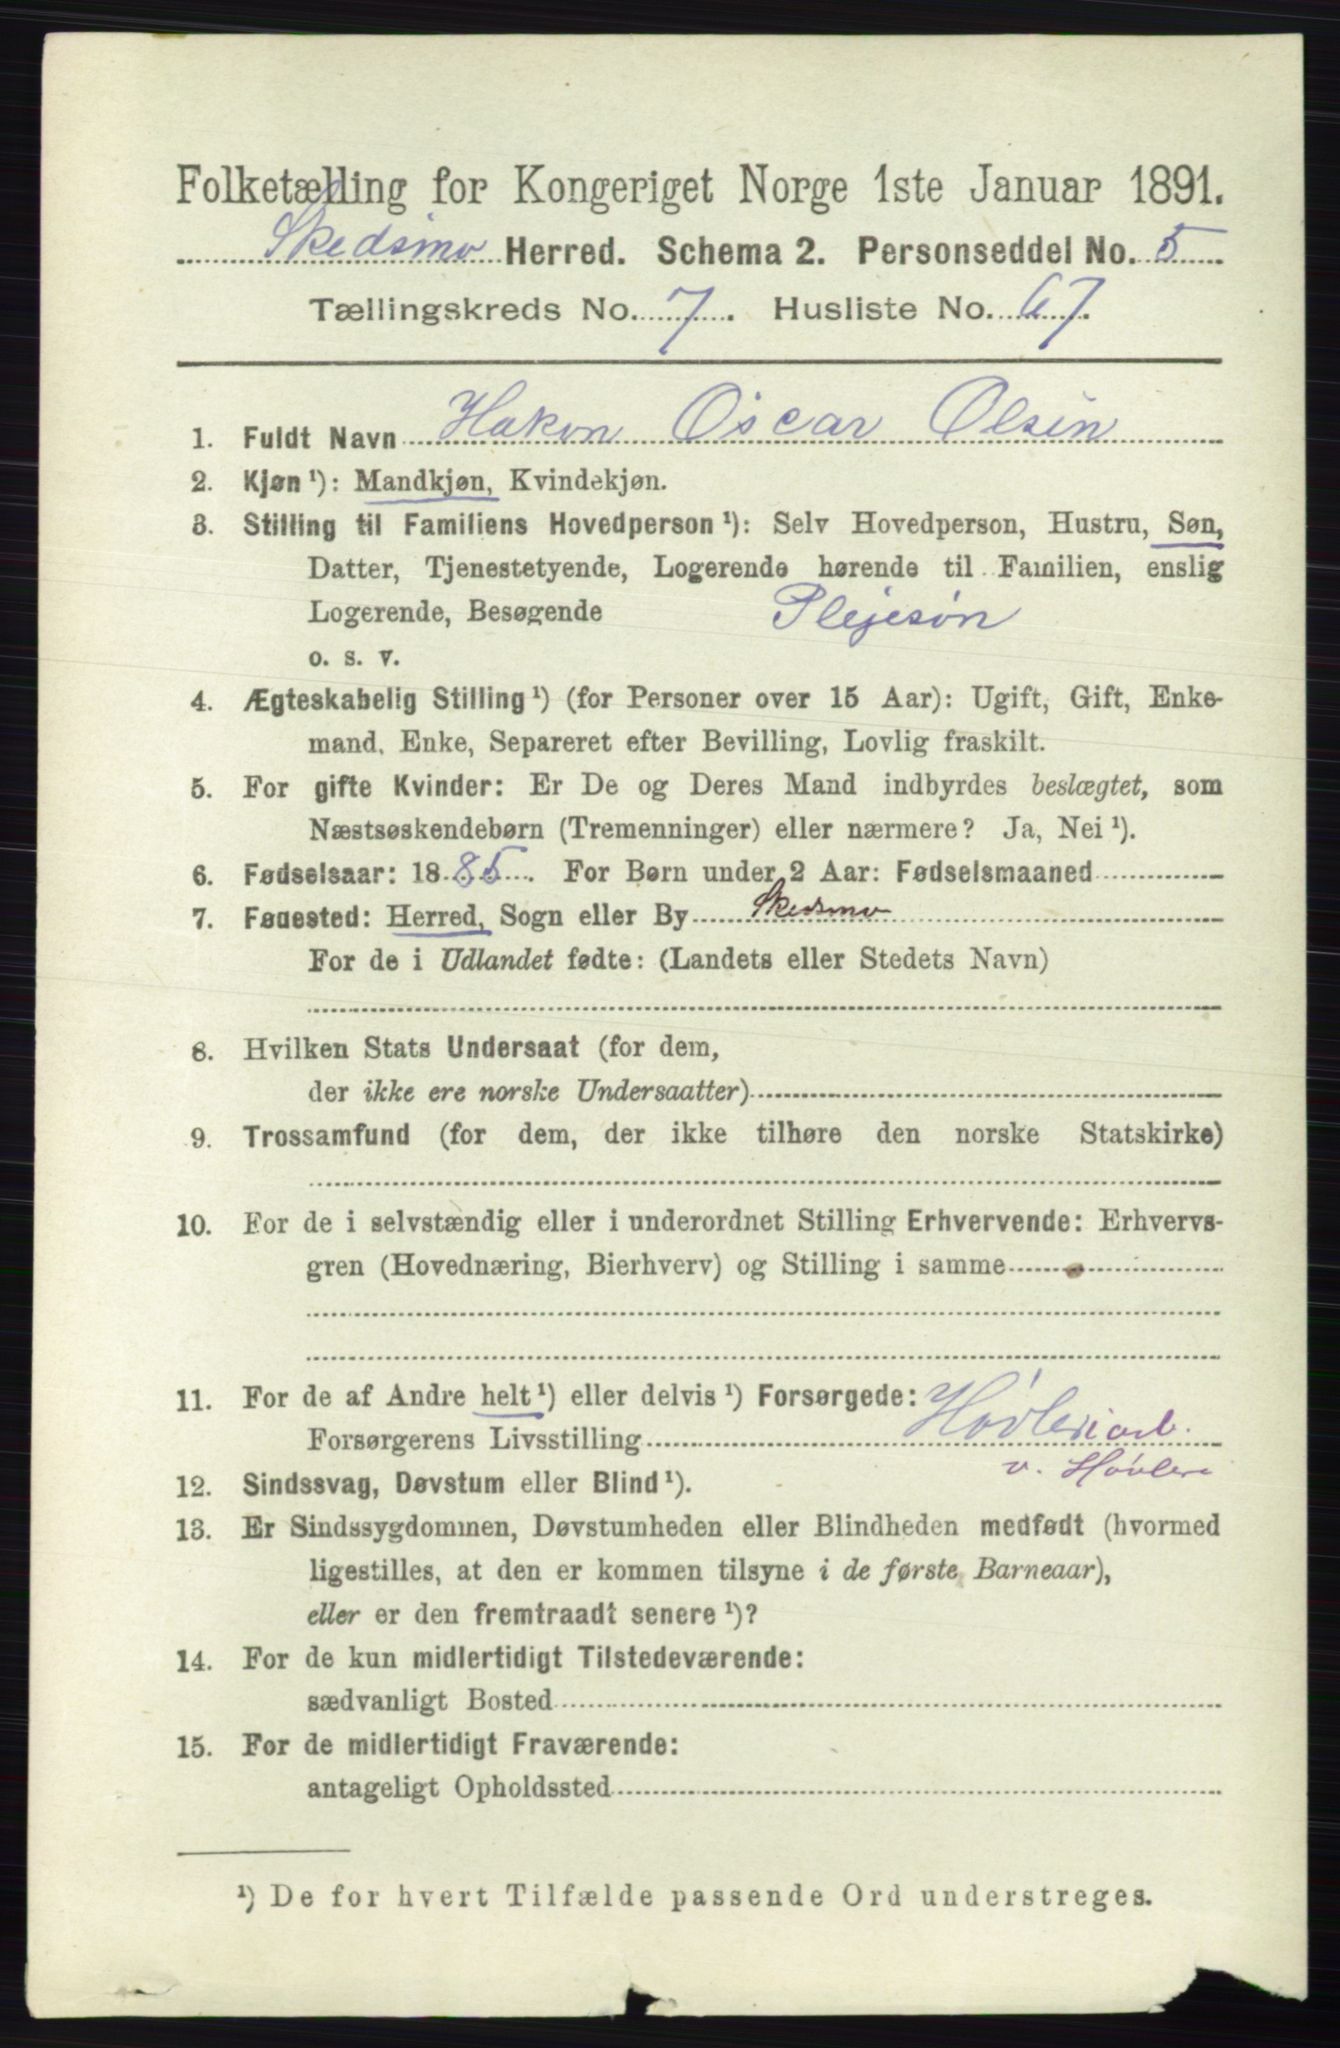 Folketælling for Kongeriget Norge 1ste Januar 1891.
Skedsmo Herred. Schema 2. Personseddel No. 5
Tællingskreds No. 7. Husliste No. 67.
1. Fuldt Navn Hakon Oscar Olsen
2. Kjøn ¹): Mandkjøn, Kvindekjøn.
3. Stilling til Familiens Hovedperson ¹): Selv Hovedperson, Hustru, Søn,
Datter, Tjenestetyende, Logerende hørende til Familien, enslig
Logerende, Besøgende Plejesøn
o. s. v.
4. Ægteskabelig Stilling ¹) (for Personer over 15 Aar): Ugift, Gift, Enke-
mand, Enke, Separeret efter Bevilling, Lovlig fraskilt.
5. For gifte Kvinder: Er De og Deres Mand indbyrdes beslægtet, som
Næstsøskendebørn (Tremenninger) eller nærmere? Ja, Nei ¹).
6. Fødselsaar: 1885. For Børn under 2 Aar: Fødselsmaaned
7. Fødested: Herred, Sogn eller By Skedsmo
For de i Udlandet fødte: (Landets eller Stedets Navn)
8. Hvilken Stats Undersaat (for dem,
der ikke ere norske Undersaatter)
9. Trossamfund (for dem, der ikke tilhøre den norske Statskirke)
10. For de i selvstændig eller i underordnet Stilling Erhvervende: Erhvervs-
gren (Hovednæring, Bierhverv) og Stilling i samme
11. For de af Andre helt ¹) eller delvis ¹) Forsørgede:
Forsørgerens Livsstilling Høvleriarb.
v. Høvleri
12. Sindssvag, Døvstum eller Blind ¹).
13. Er Sindssygdommen, Døvstumheden eller Blindheden medfødt (hvormed
ligestilles, at den er kommen tilsyne i de første Barneaar),
eller er den fremtraadt senere ¹)?
14. For de kun midlertidigt Tilstedeværende:
sædvanligt Bosted
15. For de midlertidigt Fraværende:
antageligt Opholdssted
¹) De for hvert Tilfælde passende Ord understreges.